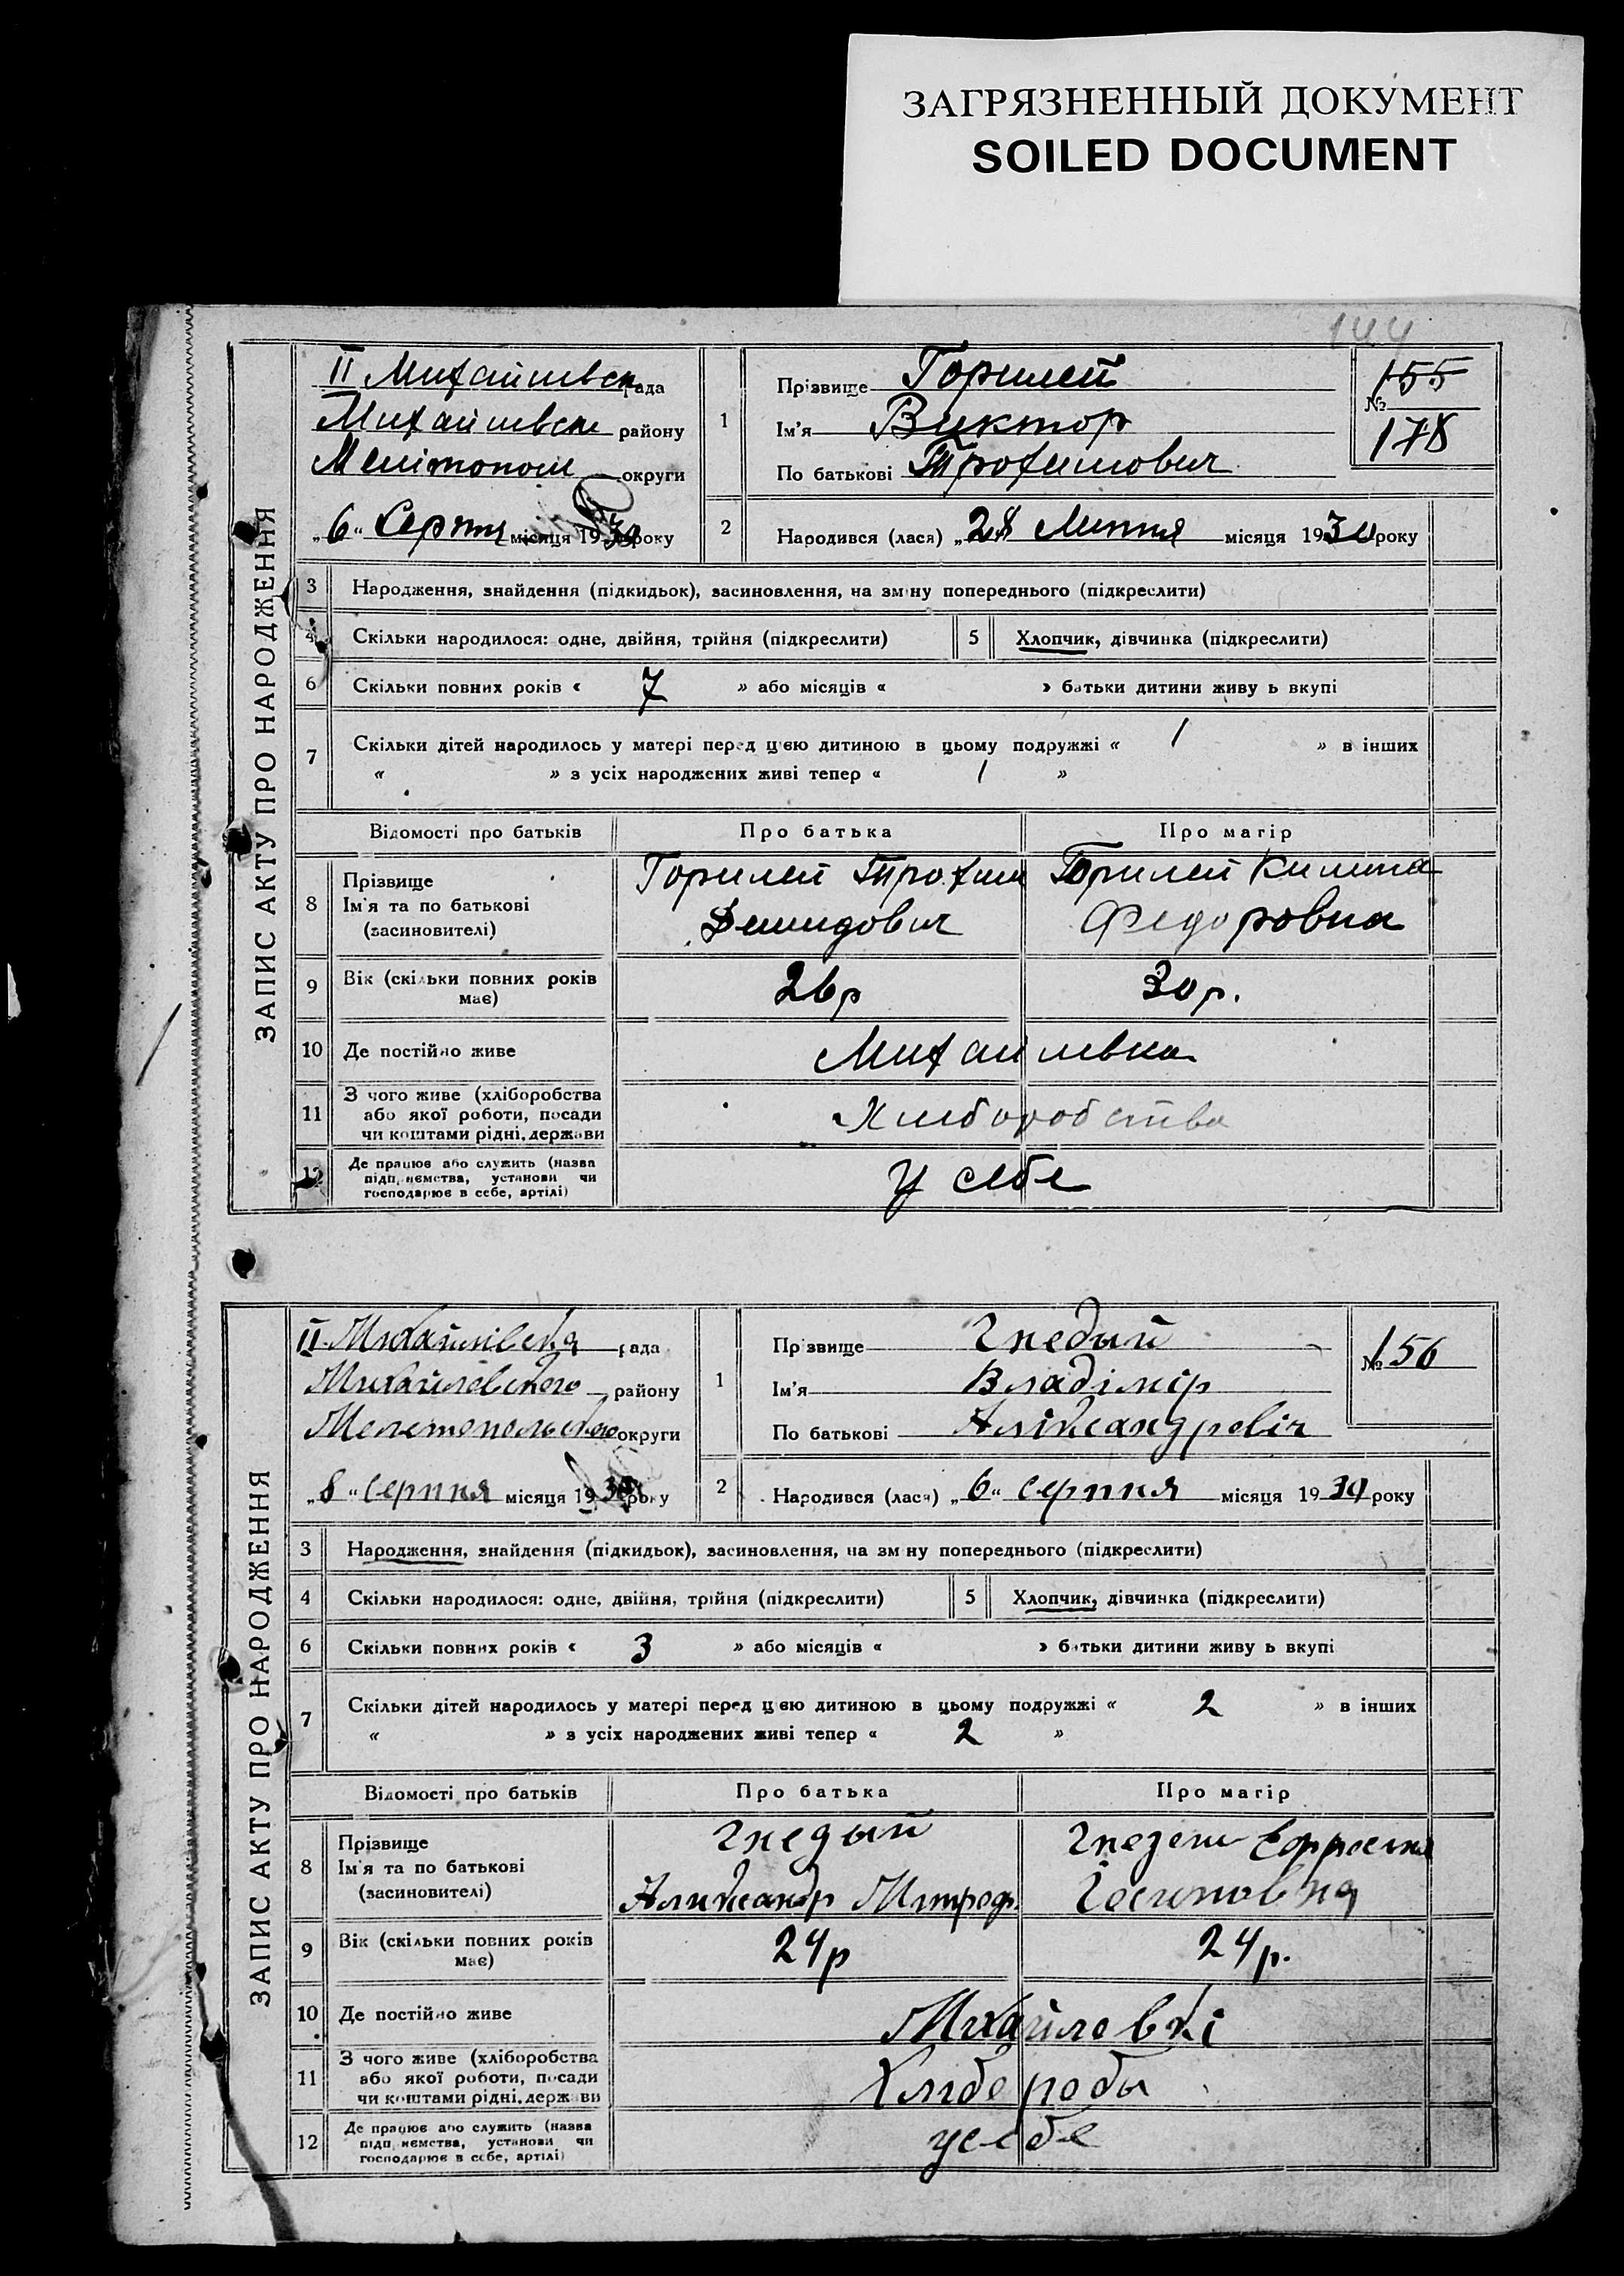 ЗАГРЯЗНЕННЫЙ ДОКУМЕНТ
SOILED DOCUMENT
144
ЗАПИС АКТУ ПРО НАРОДЖЕННЯ
II Михайлівск рада
Михайлівск району
Мелітопол округи
„6" Серпня місяця 1930 року
1 Прізвище Горилей
Ім'я Виктор
По батькові Трохимович
№ 155
178
2 Народився (лася) „28 Липня місяця 1930 року
3 Народження, знайдення (підкидьок), засиновлення, на зміну попереднього (підкреслити)
4 Скільки народилося: одне, двійня, трійня (підкреслити) 5 Хлопчик, дівчинка (підкреслити)
6 Скільки повних років « 7 » або місяців « » батьки дитини живу ь вкупі
7 Скільки дітей народилось у матері перед цією дитиною в цьому подружжі « 1 » в інших
« » з усіх народжених живі тепер « 1 »
Відомості про батьків Про батька Про матір
8 Прізвище
Ім'я та по батькові
(засиновителі)
Горилей Трохим
Демидович
Горилей
Федоровна
9 Вік (скільки повних років
має)
26р 30р.
10 Де постійно живе Михайлівка
11 З чого живе (хліборобства
або якої роботи, посади
чи коштами рідні, держави
Хліборобства
12 Де працює або служить (назва
підприємства, установи чи
господарює в себе, артілі)
у себе
ЗАПИС АКТУ ПРО НАРОДЖЕННЯ
II Михайлівска рада
Михайловского району
Мелетопольского округи
„8" серпня місяця 1930 року
1 Прізвище Гнедый
Ім'я Владімір
По батькові Аліксандровіч
№ 156
2 Народився (лася) „6" серпня місяця 1930 року
3 Народження, знайдення (підкидьок), засиновлення, на зміну попереднього (підкреслити)
4 Скільки народилося: одне, двійня, трійня (підкреслити) 5 Хлопчик, дівчинка (підкреслити)
6 Скільки повних років « 3 » або місяців « » батьки дитини живу ь вкупі
7 Скільки дітей народилось у матері перед цією дитиною в цьому подружжі « 2 » в інших
« » з усіх народжених живі тепер « 2 »
Відомості про батьків Про батька Про матір
8 Прізвище
Ім'я та по батькові
(засиновителі)
Гнедый
Александр Митроф.
9 Вік (скільки повних років
має)
24р 24р.
10 Де постійно живе Михайловкі
11 З чого живе (хліборобства
або якої роботи, посади
чи коштами рідні, держави
Хлібороби
12 Де працює або служить (назва
підприємства, установи чи
господарює в себе, артілі)
усебе